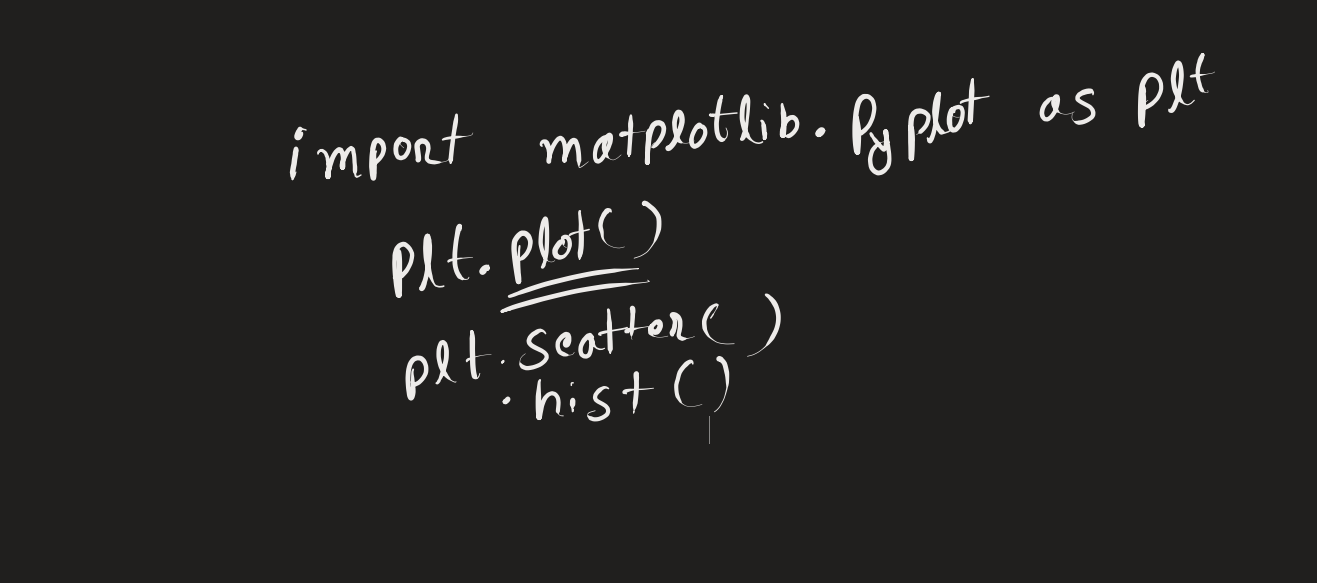 import matplotlib.Pyplot as plt
plt.plot()
plt.scatter()
.hist()